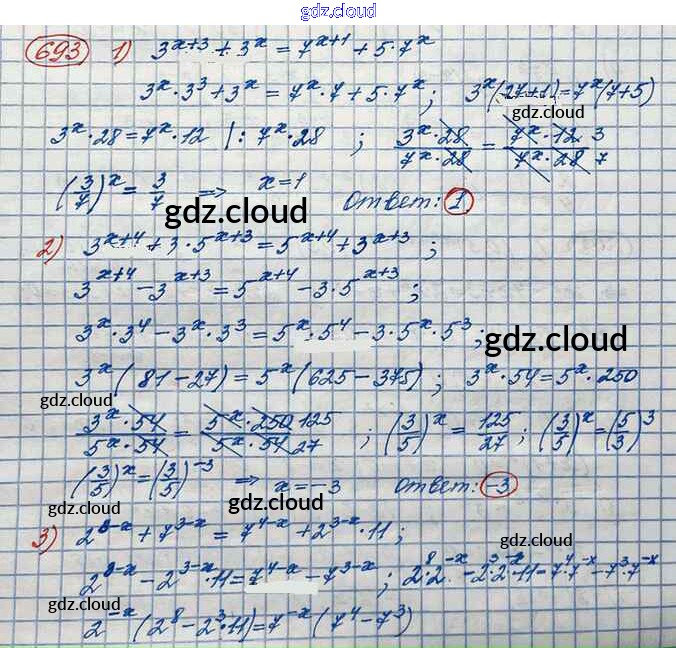 gdz.cloud
693 1) 3^{x+3} + 3^x = 7^{x+1} + 5·7^x
3^x·3^3 + 3^x = 7^x·7 + 5·7^x ; 3^x(27+1) = 7^x(7+5)
3^x·28 = 7^x·12 | : 7^x·28 ; \frac{3^x·28}{7^x·28} = \frac{7^x·12 3}{7^x·28 7}
(\frac{3}{7})^x = \frac{3}{7} ⇒ x = 1 Ответ: 1
gdz.cloud gdz.cloud
2) 3^{x+4} + 3·5^{x+3} = 5^{x+4} + 3^{x+3} ;
3^{x+4} − 3^{x+3} = 5^{x+4} − 3·5^{x+3} ;
3^x·3^4 − 3^x·3^3 = 5^x·5^4 − 3·5^x·5^3 ;
gdz.cloud
3^x(81−27) = 5^x(625−375) ; 3^x·54 = 5^x·250
gdz.cloud
\frac{3^x·54}{5^x·54} = \frac{5^x·250 125}{5^x·54 27} ; (\frac{3}{5})^x = \frac{125}{27} ; (\frac{3}{5})^x = (\frac{5}{3})^3
(\frac{3}{5})^x = (\frac{3}{5})^{−3} ⇒ x = −3 Ответ: −3
gdz.cloud gdz.cloud
3) 2^{8−x} + 7^{3−x} = 7^{4−x} + 2^{3−x}·11 ;
gdz.cloud
2^{8−x} − 2^{3−x}·11 = 7^{4−x} − 7^{3−x} ; 2^8·2^{−x} − 2^3·2^{−x}·11 = 7^4·7^{−x} − 7^3·7^{−x}
gdz.cloud gdz.cloud
2^{−x}(2^8 − 2^3·11) = 7^{−x}(7^4 − 7^3)